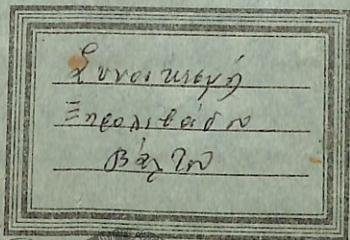 Συνοικισμό
Ξηρολιβάδου
Βάλτου